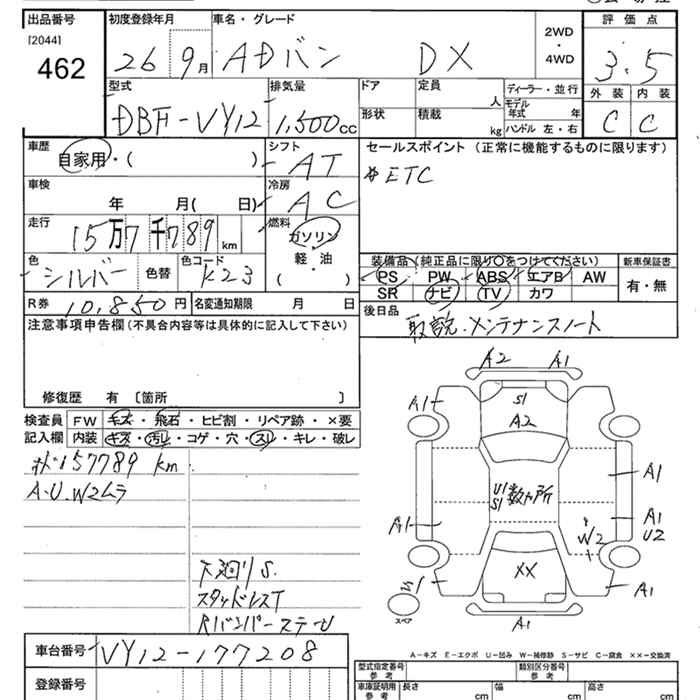 出品番号 初度登録年月 車名・グレード 評価点
[2044]
462 26 9月 ADバン DX 2WD・4WD 3.5
型式 排気量 ドア 定員 人 ディーラー・並行 外装 内装
DBF-VY12 1,500cc 形状 積載 kg モデル年式 年 C C
ハンドル 左・右
車歴 シフト セールスポイント (正常に機能するものに限ります)
自家用・( ) AT ETC
車検 冷房
年 月( 日) AC
走行 燃料
15万7千789km ガソリン
軽・油
( )
色 色替 色コード 装備品(純正品に限り○をつけてください) 新車保証書
シルバー K23 PS PW ABS エアB AW 有・無
SR ナビ TV カワ
R券 10,850円 名変通知期限 月 日 後日品
取説・メンテナンスノート
注意事項申告欄(不具合内容等は具体的に記入して下さい)
修復歴 有 〔箇所 〕
検査員 FW キズ・飛石・ヒビ割・リペア跡・×要
記入欄 内装 キズ・汚レ・コゲ・穴・スレ・キレ・破レ
157789 km
A.U.W2ムラ
下廻りS.
スタッドレスT
RバンパーステーU
A2 A1
A1 S1
A2
A1
U1 S1 数ヵ所
A1 A1
U2
W2
XX
A1
A1
スペア
A-キズ E-エクボ U-凹み W-補修跡 S-サビ C-腐食 ××-交換済
車台番号 VY12-177208
登録番号
型式指定番号 参考 類別区分番号 参考
車庫証明用 参考 長さ cm 幅 cm 高さ cm